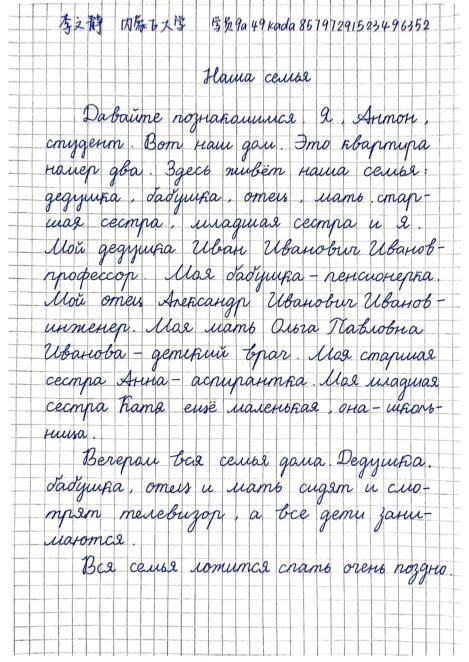 李文静 内蒙古大学 学员9a49kada85797291523496352
Наша семья
Давайте познакомимся. Я, Антон,
студент. Вот наш дом. Это квартира
номер два. Здесь живёт наша семья:
дедушка, бабушка, отец, мать, стар-
шая сестра, младшая сестра и я.
Мой дедушка Иван Иванович Иванов-
профессор. Моя бабушка - пенсионерка.
Мой отец Александр Иванович Иванов-
инженер. Моя мать Ольга Павловна
Иванова - детский врач. Моя старшая
сестра Анна - аспирантка. Моя младшая
сестра Катя ещё маленькая, она - школь-
ница.
Вечером вся семья дома. Дедушка,
бабушка, отец и мать сидят и смо-
трят телевизор, а все дети зани-
маются.
Вся семья ложится спать очень поздно.